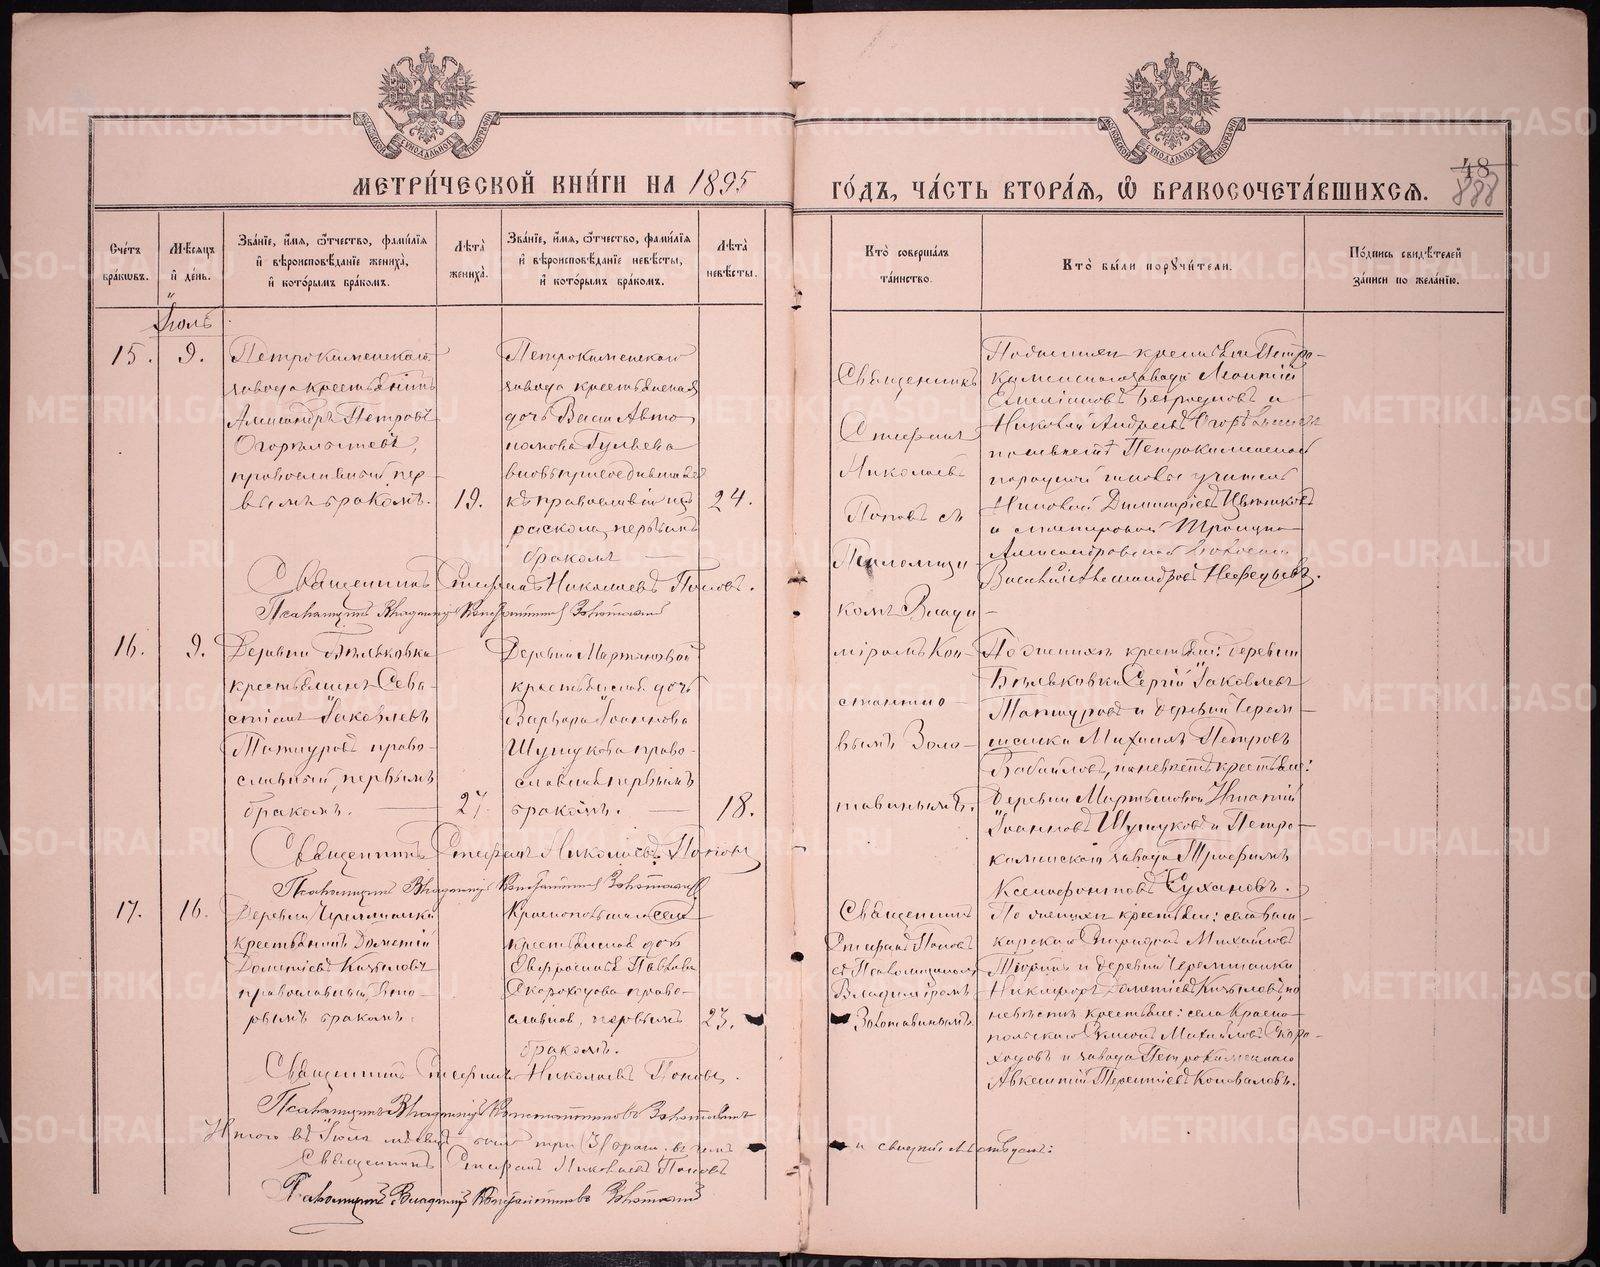 МЕТРИ́ЧЕСКОЙ КНИ́ГИ НА 1895
ГО́ДЪ, ЧА́СТЬ ВТОРА́Я, Ѡ БРАКОСОЧЕТА́ВШИХСЯ.
48
888
Сче́тъ бра́ковъ.
Мѣ́сяцъ и де́нь.
Зва́нїе, и́мя, ѻ́тчество, фами́лїя и вѣроисповѣ́данїе жениха̀, и кото́рымъ бра́комъ.
Лѣта̀ жениха̀.
Зва́нїе, и́мя, ѻ́тчество, фами́лїя и вѣроисповѣ́данїе невѣ́сты, и кото́рымъ бра́комъ.
Лѣта̀ невѣ́сты.
Кто̀ соверша́лъ та́инство.
Кто̀ бы́ли порꙋчи́тели.
По́дпись свидѣ́телей за́писи по жела́нїю.
Іюль
15.
9.
Петрокаменскаго
завода крестьянинъ
Александръ Петровъ
Огорѣлышевъ,
православный, пер-
вымъ бракомъ.
19.
Петрокаменскаго
завода крестьянская
дочь Васса Авто
номова Гуляева
вновь присоедившаяся
къ православію изъ
раскола, первымъ
бракомъ
24.
Священникъ
Стефанъ
Николаевъ
Поповъ съ
Псаломщи
комъ Влади
міромъ Кон-
стантино-
вымъ Золо-
тавинымъ.
По женихѣ крестьяне Петро-
каменскаго завода Леонтій
Николай Андреевъ Огорѣлышевъ
по невѣстѣ Петрокаменской
народной школы учитель
Николай Димитріевъ
Александровской волости
Василій Александровъ Нефедьевъ.
Священникъ Стефанъ Николаевъ Поповъ.
Псаломщикъ Владиміръ Константиновъ Золотавинъ
16.
9.
Деревни Бѣльковки
крестьянинъ Сева-
стіанъ Іаковлевъ
Татауровъ право-
славный, первымъ
бракомъ.
27.
Деревни Мартьяновой
крестьянская дочь
Варвара Іоаннова
Шушукова право-
славная, первымъ
бракомъ.
18.
По женихѣ крестьяне: деревни
Бѣльковки Сергій Іаковлевъ
Татауровъ и деревни Черем-
шанки Михаилъ Петровъ
по невѣстѣ крестьяне:
деревни Мартьяновой Игнатій
Іоанновъ Шушуковъ и Петро-
каменскаго завода Трофимъ
Ксенофонтовъ Сухановъ.
Священникъ Стефанъ Николаевъ Поповъ
Псаломщикъ Владиміръ Константиновъ Золотавинъ
17.
16.
Деревни Черемшанки
крестьянинъ Дометій
Дометіевъ Кизиловъ
православный, вто-
рымъ бракомъ.
Краснопольскаго села
крестьянская дочь
Евфросинія Павлова
Скороходова право-
славная, первымъ
бракомъ.
23.
Священникъ
Стефанъ Поповъ
съ Псаломщикомъ
Владиміромъ
Золотавинымъ.
По женихѣ крестьяне: села Баш-
карскаго Спиридонъ Михайловъ
и деревни Черемшанки
Никифоръ Дометіевъ Кизиловъ, по
невѣстѣ крестьяне: села Красно-
польскаго Симонъ Михайловъ Скоро-
ходовъ и завода Петрокаменскаго
Авксентій Терентіевъ Коноваловъ.
Священникъ Стефанъ Николаевъ Поповъ.
Псаломщикъ Владиміръ Константиновъ Золотавинъ
Итого въ Іюлѣ мѣсяцѣ было три (3) брака, въ чемъ
и свидѣтельствуемъ:
Священникъ Стефанъ Николаевъ Поповъ
Псаломщикъ Владиміръ Константиновъ Золотавинъ
METRIKI.GASO-URAL.RU